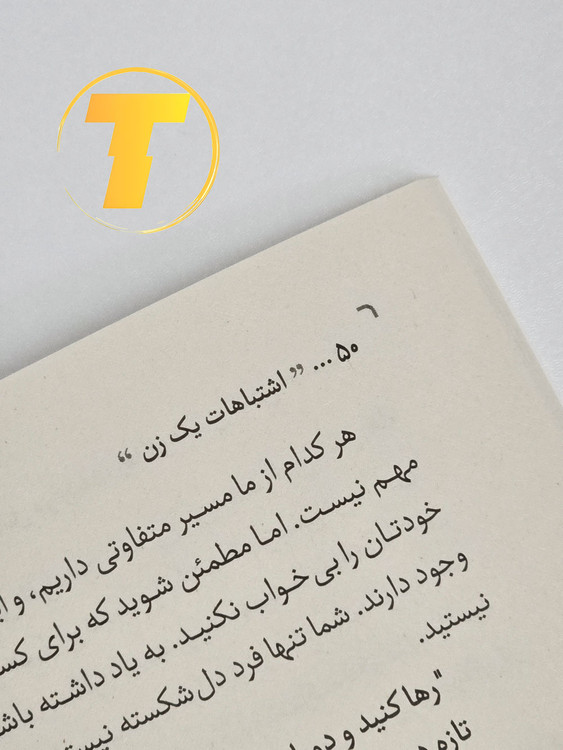 T
۵۰ ... ” اشتباهات یک زن “
هر کدام از ما مسیر متفاوتی داریم، و
مهم نیست. اما مطمئن شوید که برای
خودتان را بی‌خواب نکنید. به یاد داشته
وجود دارند. شما تنها فرد دل‌شکسته
نیستید.
"رها کنید و
تازه